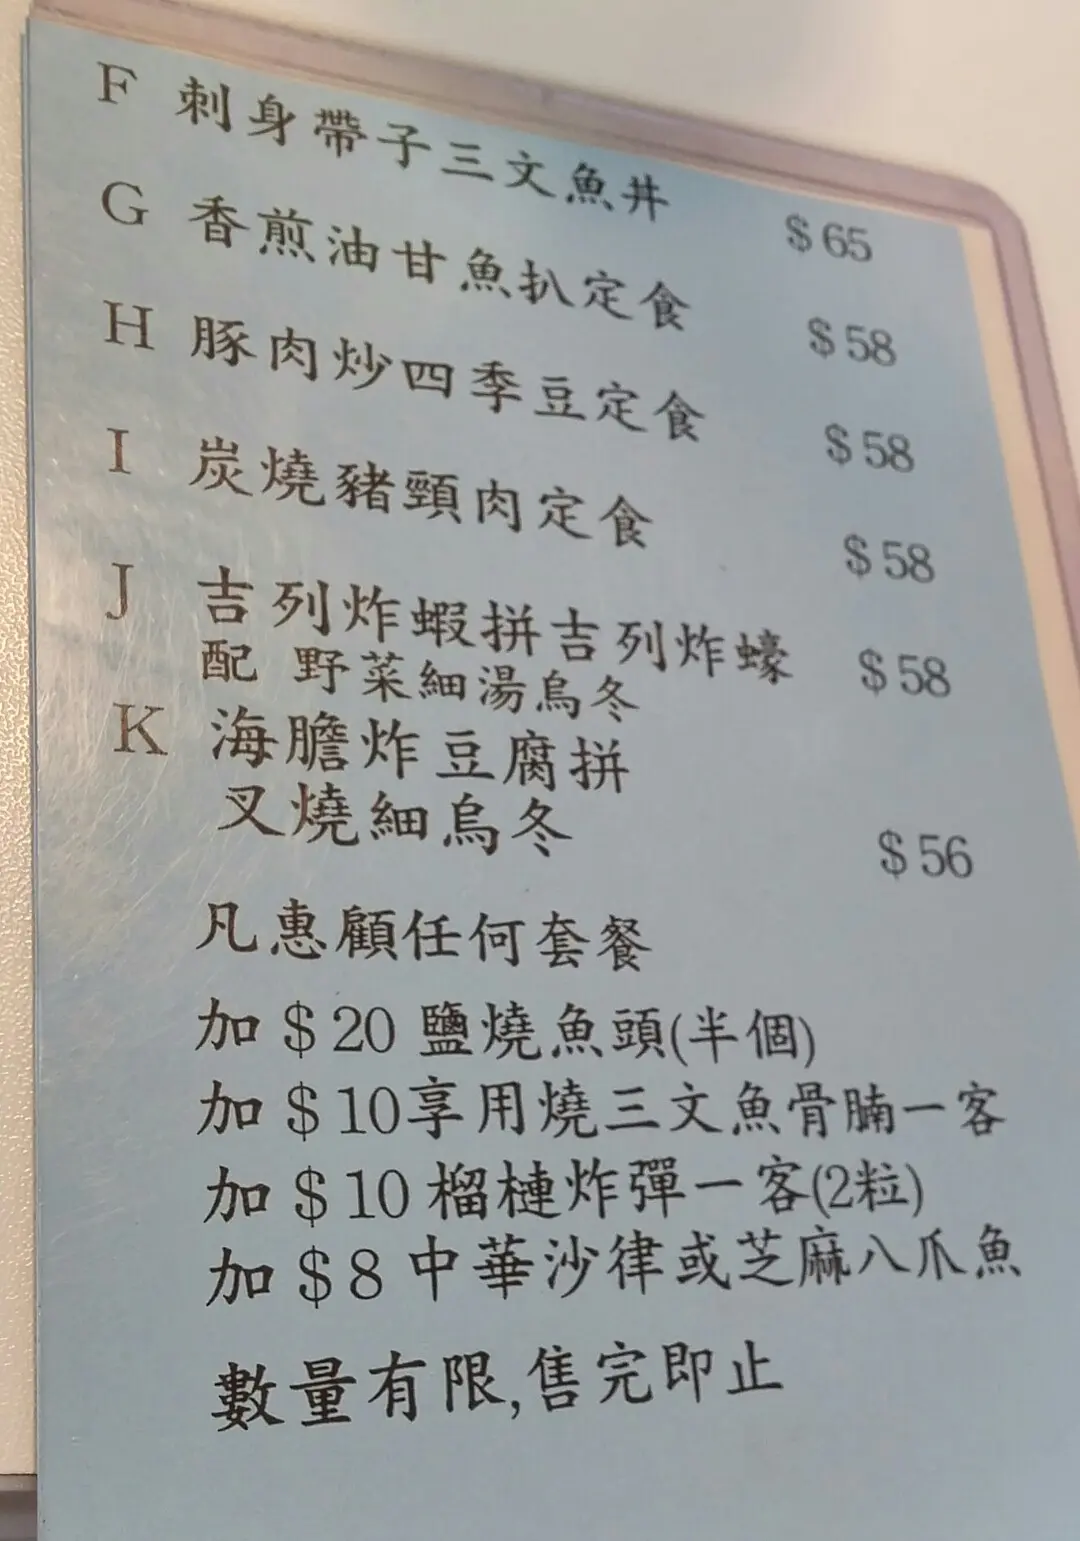 F 刺身帶子三文魚丼 $65
G 香煎油甘魚扒定食 $58
H 豚肉炒四季豆定食 $58
I 炭燒豬頸肉定食 $58
J 吉列炸蝦拼吉列炸蠔 $58
配 野菜細湯烏冬
K 海膽炸豆腐拼
叉燒細烏冬 $56
凡惠顧任何套餐
加$20 鹽燒魚頭(半個)
加$10享用燒三文魚骨腩一客
加$10 榴槤炸彈一客(2粒)
加$8 中華沙律或芝麻八爪魚
數量有限,售完即止